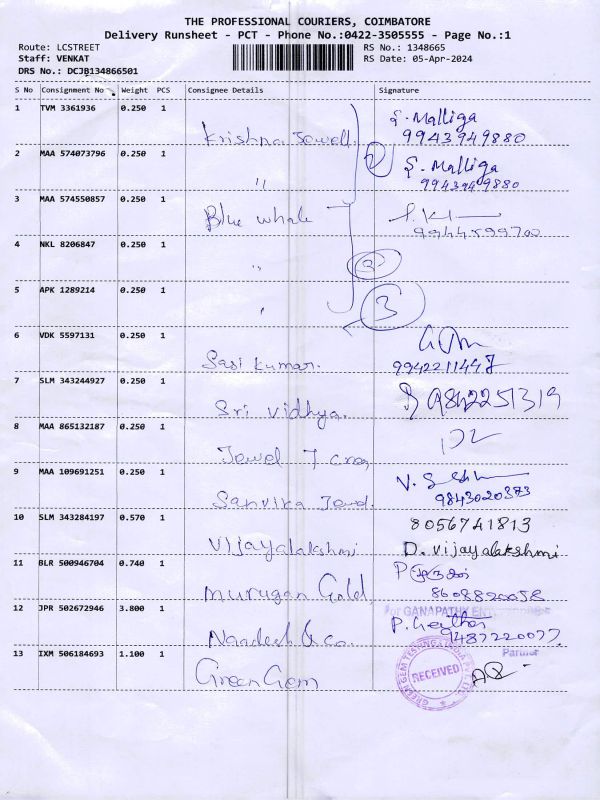 THE PROFESSIONAL COURIERS, COIMBATORE
Delivery Runsheet - PCT - Phone No.:0422-3505555 - Page No.:1
Route: LCSTREET
Staff: VENKAT
DRS No.: DCJB134866501
RS No.: 1348665
RS Date: 05-Apr-2024
S No Consignment No Weight PCS Consignee Details Signature
1 TVM 3361936 0.250 1 Krishna Jewell. S. Malliga
9943949880
2 MAA 574073796 0.250 1 " S. Malliga
2 9943949880
3 MAA 574550857 0.250 1 Blue Whale
9944599700
4 NKL 8206847 0.250 1 "
3
5 APK 1289214 0.250 1 "
3
6 VDK 5597131 0.250 1 Sasi kumar.
9942211447
7 SLM 343244927 0.250 1 Sri Vidhya. 9842251319
8 MAA 865132187 0.250 1 Jewel
9 MAA 109691251 0.250 1 Sanvika Jewel.
9843020373
10 SLM 343284197 0.570 1 Vijayalakshmi 8056741813
D. Vijayalakshmi
11 BLR 500946704 0.740 1 Murugan Gold,
8608820058
For GANAPATHY
12 JPR 502672946 3.800 1 Naadesh & Co. P.
9487220077
Partner
13 IXM 506184693 1.100 1 Green Gem
GREEN GEM TESTING INDIA PVT. LTD.
RECEIVED